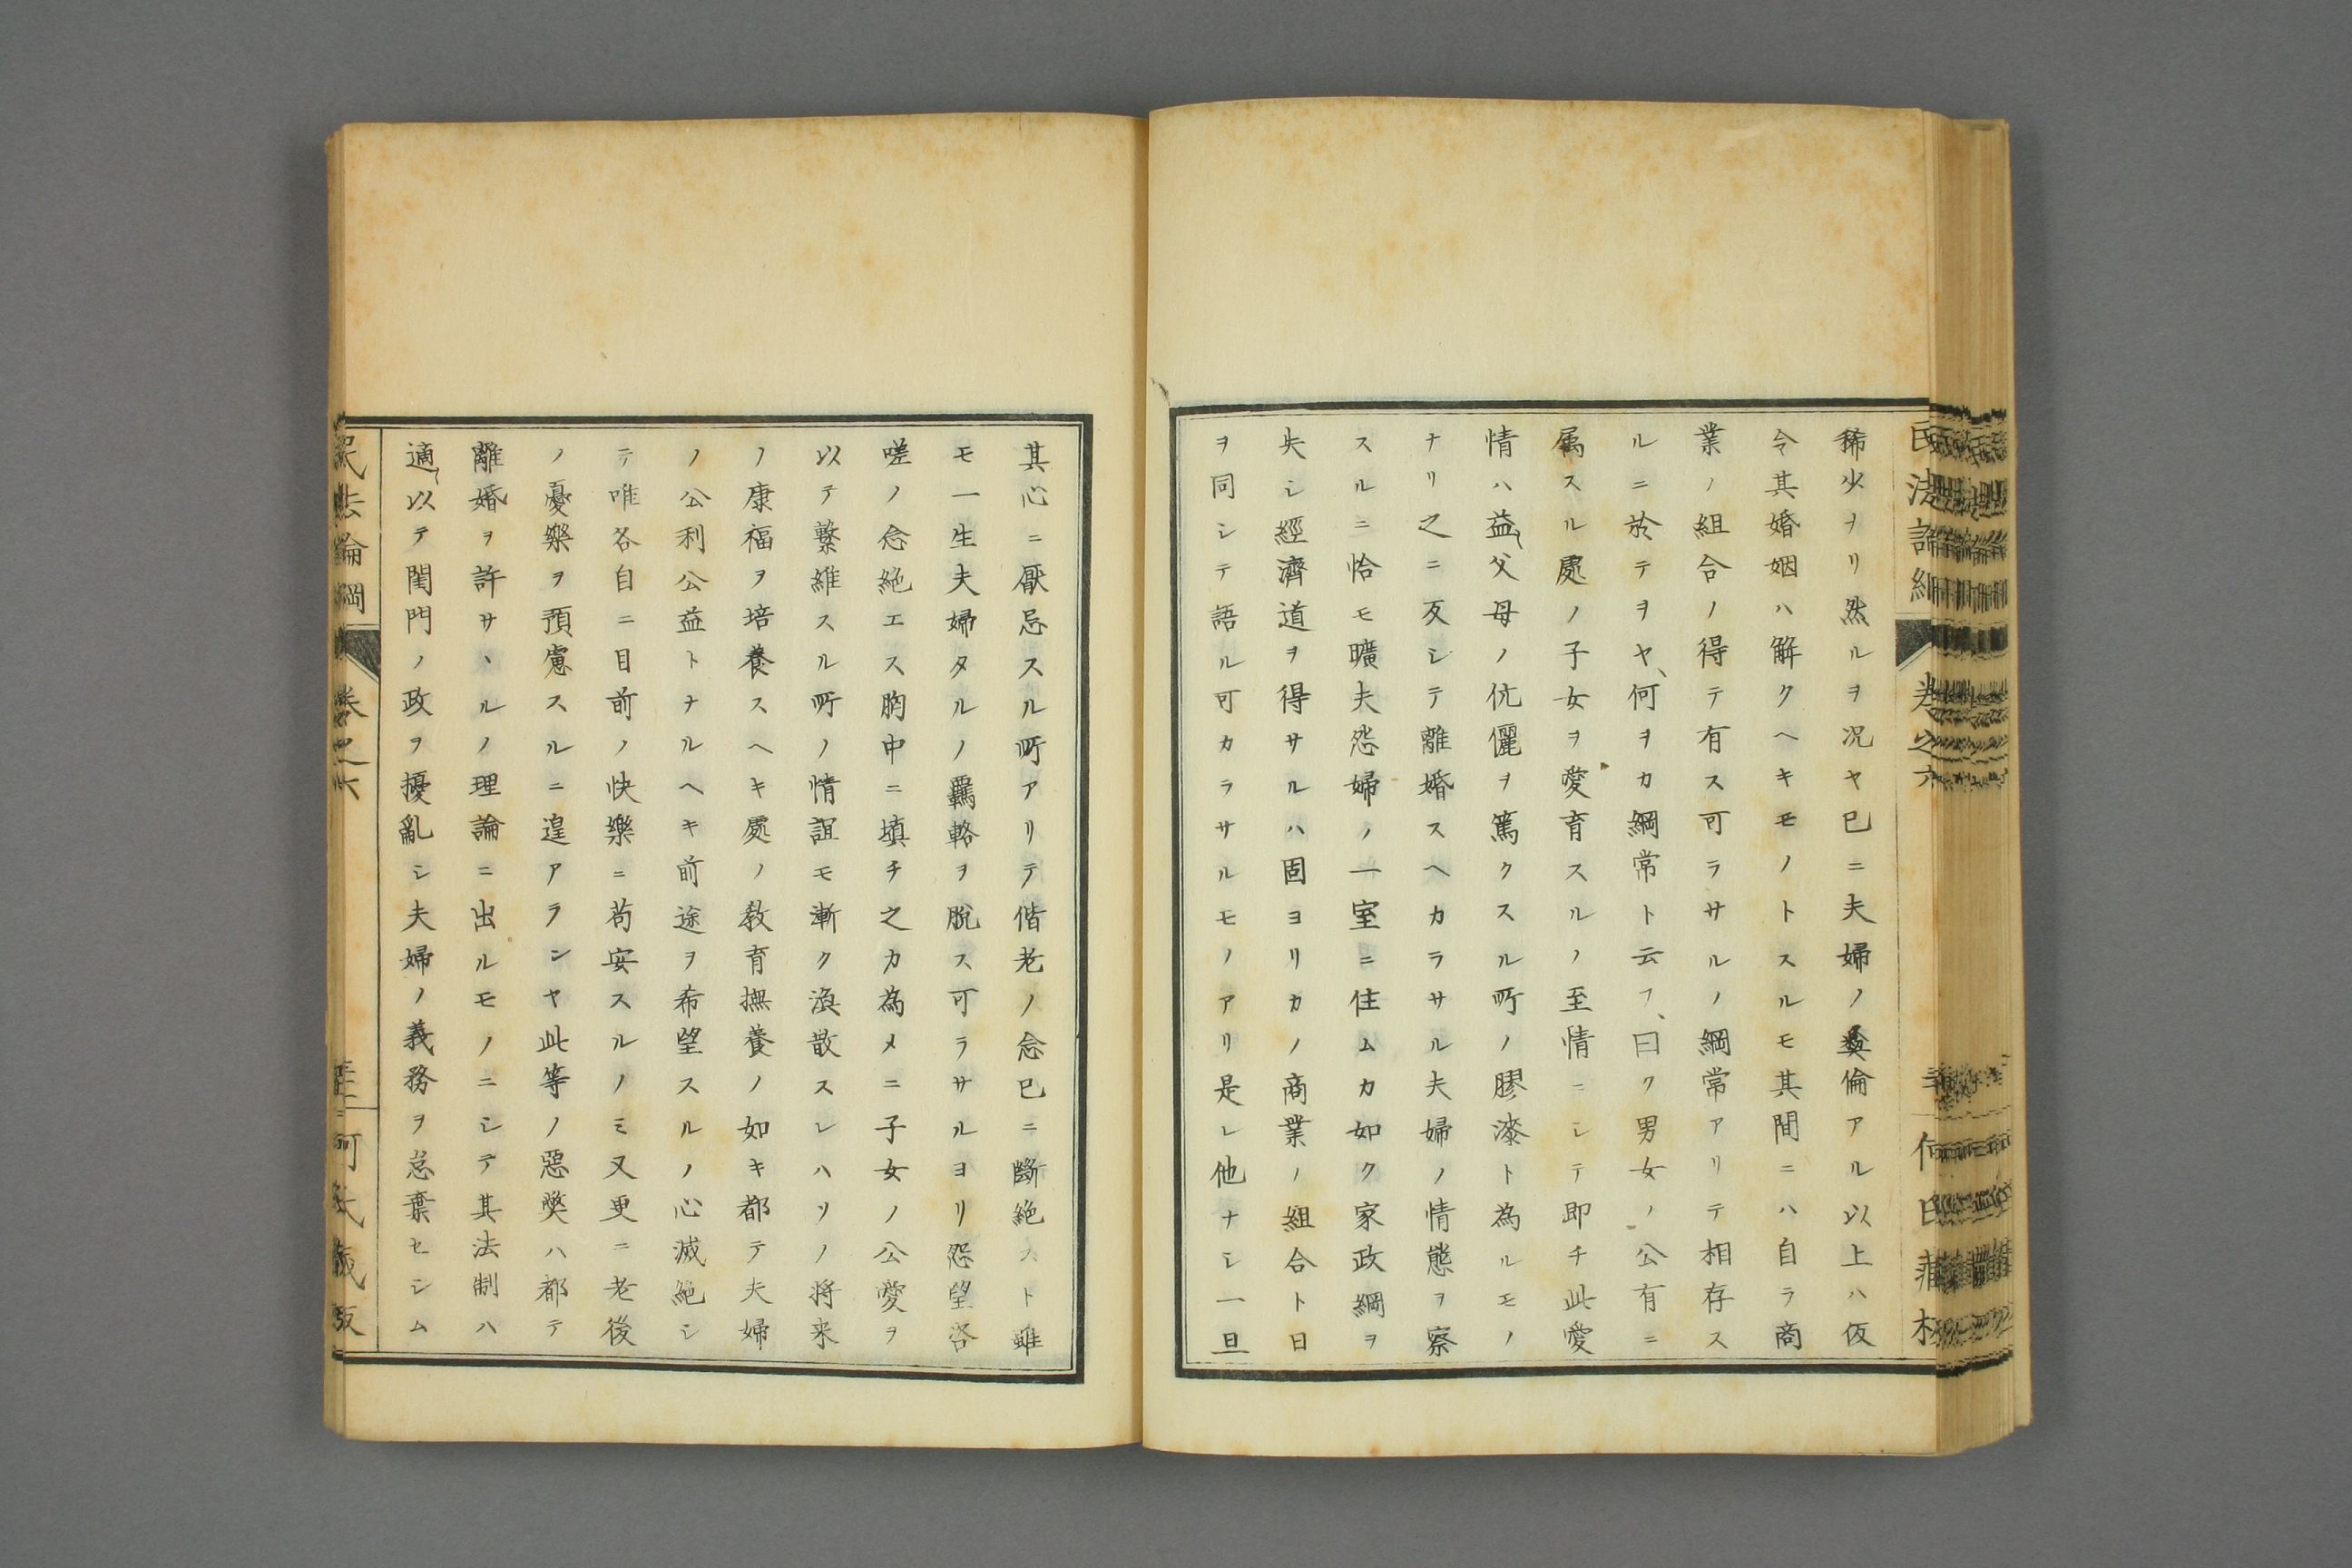 稀少ナリ然ルヲ况ヤ已ニ夫婦ノ彜倫アル以上ハ仮
令其婚姻ハ解クヘキモノトスルモ其間ニハ自ラ商
業ノ組合ノ得テ有ス可ラサルノ綱常アリテ相存ス
ルニ於テヲヤ、何ヲカ綱常ト云フ、曰ク男女ノ公有ニ
属スル處ノ子女ヲ愛育スルノ至情ニシテ即チ此愛
情ハ益〻父母ノ伉儷ヲ篤クスル所ノ膠漆ト為ルモノ
ナリ之ニ反シテ離婚スヘカラサル夫婦ノ情態ヲ察
スルニ恰モ曠夫怨婦ノ一室ニ住ムカ如ク家政綱ヲ
失シ經濟道ヲ得サルハ固ヨリカノ商業ノ組合ト日
ヲ同シテ語ル可カラサルモノアリ是レ他ナシ一旦
其心ニ厭忌スル所アリテ偕老ノ念已ニ斷絶スト雖
モ一生夫婦タルノ羈輅ヲ脱ス可ラサルヨリ怨望咨
嗟ノ念絶エス胸中ニ填チ之カ為メニ子女ノ公愛ヲ
以テ繋維スル所ノ情誼モ漸ク渙散スレハソノ将来
ノ康福ヲ培養スヘキ處ノ教育撫養ノ如キ都テ夫婦
ノ公利公益トナルヘキ前途ヲ希望スルノ心滅絶シ
テ唯各自ニ目前ノ快樂ニ苟安スルノミ又更ニ老後
ノ憂樂ヲ預慮スルニ遑アランヤ此等ノ惡獘ハ都テ
離婚ヲ許サヽルノ理論ニ出ルモノニシテ其法制ハ
適〻以テ閨門ノ政ヲ擾亂シ夫婦ノ義務ヲ怠棄セシム
民法論綱
卷之六
何氏藏版